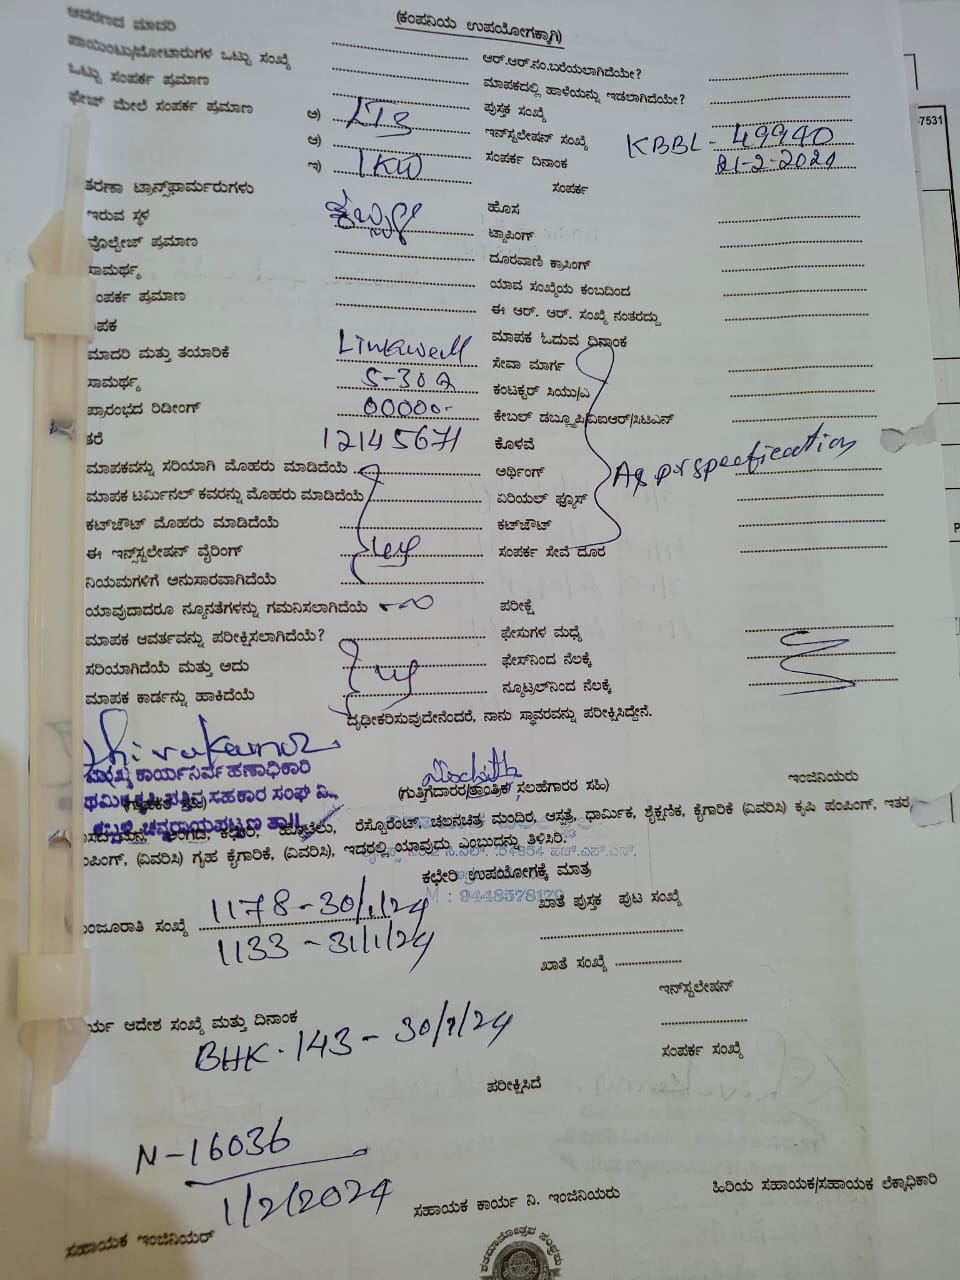 (ಕಂಪನಿಯ ಉಪಯೋಗಕ್ಕಾಗಿ)
ಆವರಣದ ಮಾದರಿ
ಪಾಯಿಂಟು/ಮೋಟಾರುಗಳ ಒಟ್ಟು ಸಂಖ್ಯೆ ಆರ್.ಆರ್.ನಂ.ಬರೆಯಲಾಗಿದೆಯೇ?
ಒಟ್ಟು ಸಂಪರ್ಕ ಪ್ರಮಾಣ ಮಾಪಕದಲ್ಲಿ ಹಾಳೆಯನ್ನು ಇಡಲಾಗಿದೆಯೇ?
ಫೇಜ್ ಮೇಲೆ ಸಂಪರ್ಕ ಪ್ರಮಾಣ ಅ) LT3 ಪುಸ್ತಕ ಸಂಖ್ಯೆ
ಆ) ಇನ್‌ಸ್ಟಲೇಷನ್ ಸಂಖ್ಯೆ KBBL - 49940
ಇ) 1KW ಸಂಪರ್ಕ ದಿನಾಂಕ 21-2-2024
ತರಣಾ ಟ್ರಾನ್ಸ್‌ಫಾರ್ಮರುಗಳು ಸಂಪರ್ಕ
ಇರುವ ಸ್ಥಳ ಹೊಸ
ವೊಲ್ಟೇಜ್ ಪ್ರಮಾಣ ಟ್ಯಾಪಿಂಗ್
ಸಾಮರ್ಥ್ಯ ದೂರವಾಣಿ ಕ್ರಾಸಿಂಗ್
ಂಪರ್ಕ ಪ್ರಮಾಣ ಯಾವ ಸಂಖ್ಯೆಯ ಕಂಬದಿಂದ
ಾಪಕ ಈ ಆರ್. ಆರ್. ಸಂಖ್ಯೆ ನಂತರದ್ದು
ಮಾಪಕ ಓದುವ ದಿನಾಂಕ
ಮಾದರಿ ಮತ್ತು ತಯಾರಿಕೆ Linkwell ಸೇವಾ ಮಾರ್ಗ
ಸಾಮರ್ಥ್ಯ 5-30A ಕಂಟಕ್ಟರ್ ಸಿಯು/ಎ
ಪ್ರಾರಂಭದ ರಿಡೀಂಗ್ 00000- ಕೇಬಲ್ ಡಬ್ಲ್ಯೂಪಿ/ವಿಐಆರ್/ಸಿಟಿಎನ್
ತರೆ 12145671 ಕೊಳವೆ
ಮಾಪಕವನ್ನು ಸರಿಯಾಗಿ ಮೊಹರು ಮಾಡಿದೆಯೆ ಅರ್ಥಿಂಗ್ As per specification
ಮಾಪಕ ಟರ್ಮಿನಲ್ ಕವರನ್ನು ಮೊಹರು ಮಾಡಿದೆಯೆ ಏರಿಯಲ್ ಫ್ಯೂಸ್
ಕಟ್‌ಔಟ್ ಮೊಹರು ಮಾಡಿದೆಯೆ ಕಟ್‌ಔಟ್
ಈ ಇನ್‌ಸ್ಟಲೇಷನ್ ವೈರಿಂಗ್ ಸಂಪರ್ಕ ಸೇವೆ ದೂರ
ನಿಯಮಗಳಿಗೆ ಅನುಸಾರವಾಗಿದೆಯೆ
ಯಾವುದಾದರೂ ನ್ಯೂನತೆಗಳನ್ನು ಗಮನಿಸಲಾಗಿದೆಯೆ ಪರೀಕ್ಷೆ
ಮಾಪಕ ಆವರ್ತವನ್ನು ಪರೀಕ್ಷಿಸಲಾಗಿದೆಯೆ? ಫೇಸುಗಳ ಮಧ್ಯೆ
ಸರಿಯಾಗಿದೆಯೆ ಮತ್ತು ಅದು ಫೇಸ್‌ನಿಂದ ನೆಲಕ್ಕೆ
ಮಾಪಕ ಕಾರ್ಡನ್ನು ಹಾಕಿದೆಯೆ ನ್ಯೂಟ್ರಲ್‌ನಿಂದ ನೆಲಕ್ಕೆ
ದೃಢೀಕರಿಸುವುದೇನೆಂದರೆ, ನಾನು ಸ್ಥಾವರವನ್ನು ಪರೀಕ್ಷಿಸಿದ್ದೇನೆ.
Shivakumar
ಮುಖ್ಯ ಕಾರ್ಯನಿರ್ವಹಣಾಧಿಕಾರಿ
(ಗುತ್ತಿಗೆದಾರರ/ತಾಂತ್ರಿಕ ಸಲಹೆಗಾರರ ಸಹಿ) ಇಂಜಿನಿಯರು
ಸಹಕಾರ ಸಂಘ ನಿ.,
ಕಬ್ಬಳಿ ಚನ್ನರಾಯಪಟ್ಟಣ ತಾ||
ರೆಸ್ಟೊರೆಂಟ್, ಚಲನಚಿತ್ರ ಮಂದಿರ, ಆಸ್ಪತ್ರೆ, ಧಾರ್ಮಿಕ, ಶೈಕ್ಷಣಿಕ, ಕೈಗಾರಿಕೆ (ವಿವರಿಸಿ) ಕೃಷಿ ಪಂಪಿಂಗ್, ಇತರ
ಂಪಿಂಗ್, (ವಿವರಿಸಿ) ಗೃಹ ಕೈಗಾರಿಕೆ, (ವಿವರಿಸಿ), ಇದರಲ್ಲಿ ಯಾವುದು ಎಂಬುದನ್ನು ತಿಳಿಸಿರಿ.
ಕಛೇರಿ ಉಪಯೋಗಕ್ಕೆ ಮಾತ್ರ
M : 9448578179
ಂಜೂರಾತಿ ಸಂಖ್ಯೆ 1178-30/1/24 ಖಾತೆ ಪುಸ್ತಕ ಪುಟ ಸಂಖ್ಯೆ
1133-31/1/24
ಖಾತೆ ಸಂಖ್ಯೆ
ಇನ್‌ಸ್ಟಲೇಷನ್
ರ್ಯ ಆದೇಶ ಸಂಖ್ಯೆ ಮತ್ತು ದಿನಾಂಕ
BHK. 143 - 30/1/24
ಸಂಪರ್ಕ ಸಂಖ್ಯೆ
ಪರೀಕ್ಷಿಸಿದೆ
N-16036
1/2/2024
ಸಹಾಯಕ ಇಂಜಿನಿಯರ್ ಸಹಾಯಕ ಕಾರ್ಯ ನಿ. ಇಂಜಿನಿಯರು ಹಿರಿಯ ಸಹಾಯಕ/ಸಹಾಯಕ ಲೆಕ್ಕಾಧಿಕಾರಿ
7531